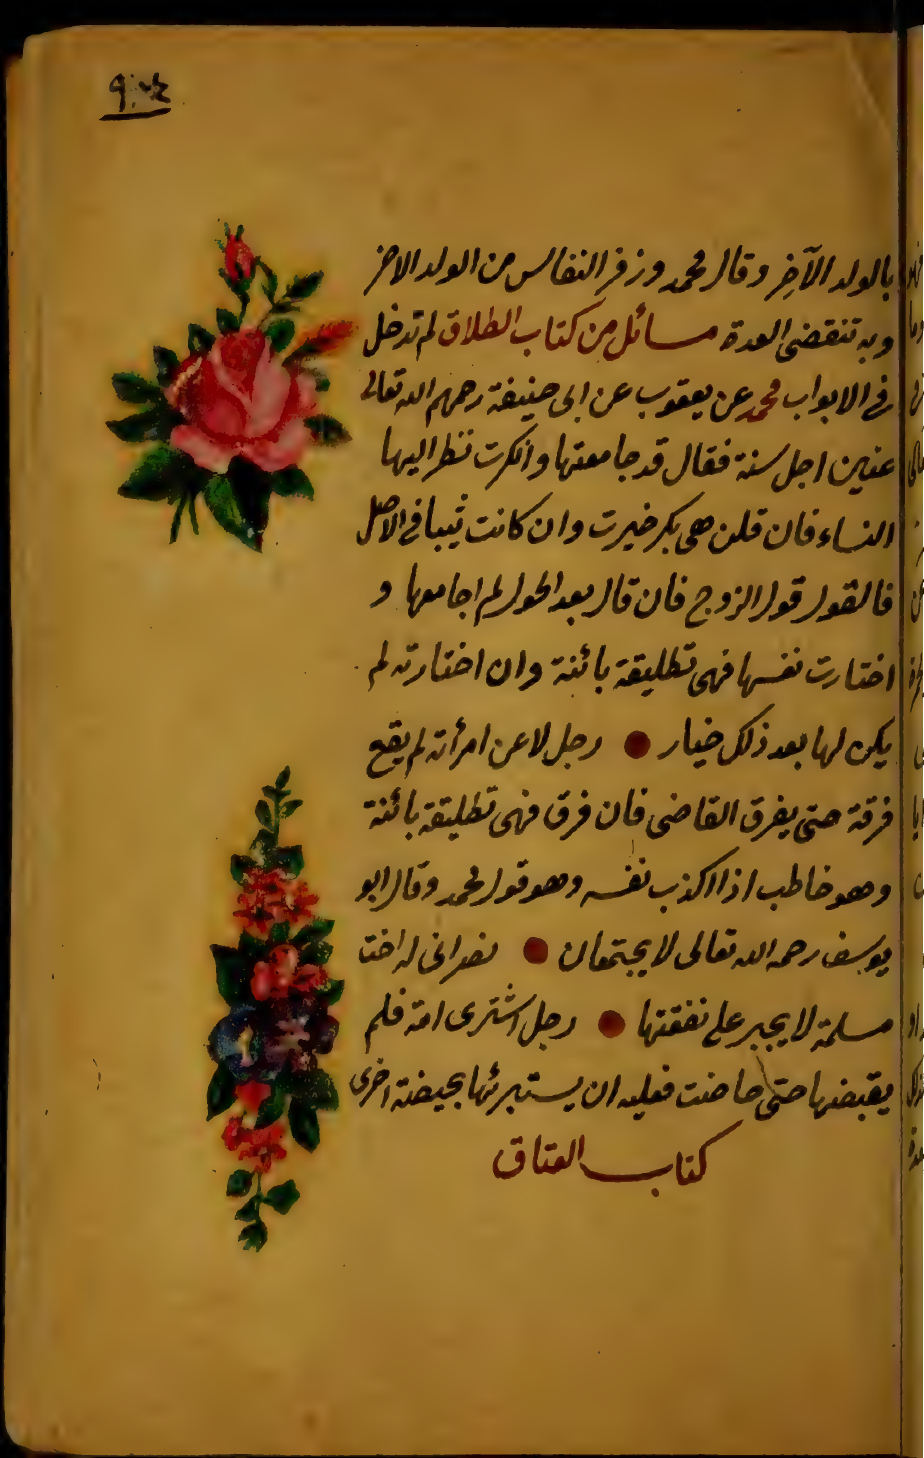 بالولد الآخِر وقال محمد وزفر النفاس من الولد الاخر
وبه تنقضي العدة مسائل من كتاب الطلاق لم تدخل
في الابواب محمد عن يعقوب عن ابى حنيفة رحمهم الله تعالى
عنين اجل سنة فقال قد جامعتها وانكرت نظر اليها
النساء فان قلن هى بكر خيرت وان كانت ثيبا في الاصل
فالقول قول الزوج فان قال بعد الحول لم اجامعها و
اختارت نفسها فهى تطليقة بائنة وان اختارته لم
يكن لها بعد ذلك خيار رجل لاعن امرأته لم يقع
فرقة حتى يفرق القاضى فان فرق فهى تطليقة بائنة
وهو خاطب اذا اكذب نفسه وهو قول محمد وقال ابو
يوسف رحمه الله تعالى لا يجتمعان نصرانى له اخت
مسلمة لا يجبر على نفقتها رجل اشترى امة فلم
يقبضها حتى حاضت فعليه ان يستبرئها بحيضة اخرى
كتاب العتاق